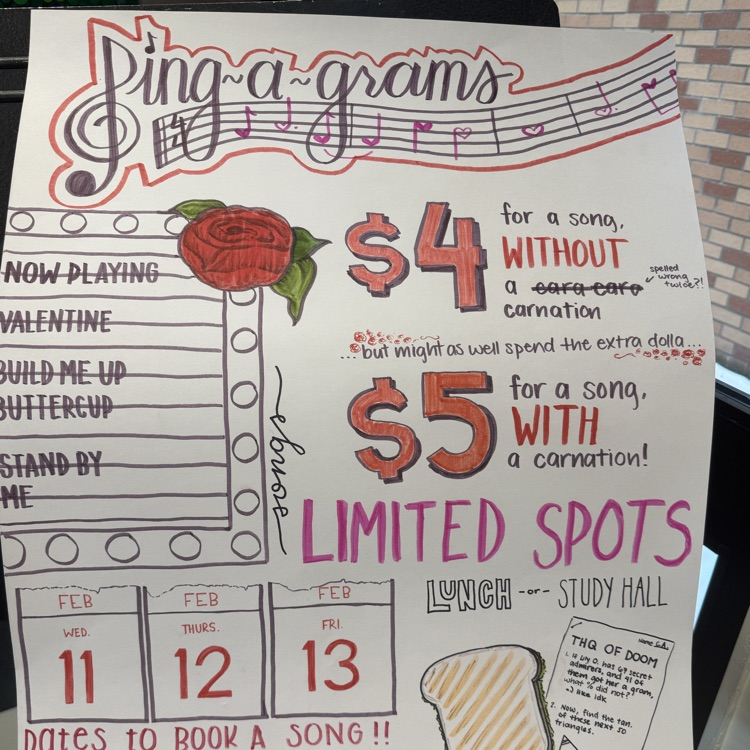 Sing~a~grams
4
4
NOW PLAYING
VALENTINE
BUILD ME UP
BUTTERCUP
STAND BY
ME
songs
$4 for a song,
WITHOUT
a cara care
carnation
spelled
wrong
twice?!
...but might as well spend the extra dolla...
$5 for a song,
WITH
a carnation!
LIMITED SPOTS
LUNCH -or- STUDY HALL
FEB
WED.
11
FEB
THURS.
12
FEB
FRI.
13
Dates to BOOK A SONG!!
Name
THQ OF DOOM
1. If O. has 67 secret
admirers, and 41 of
them got her a gram,
what % did not?
like idk
2. Now, find the tan.
of these next 50
triangles.